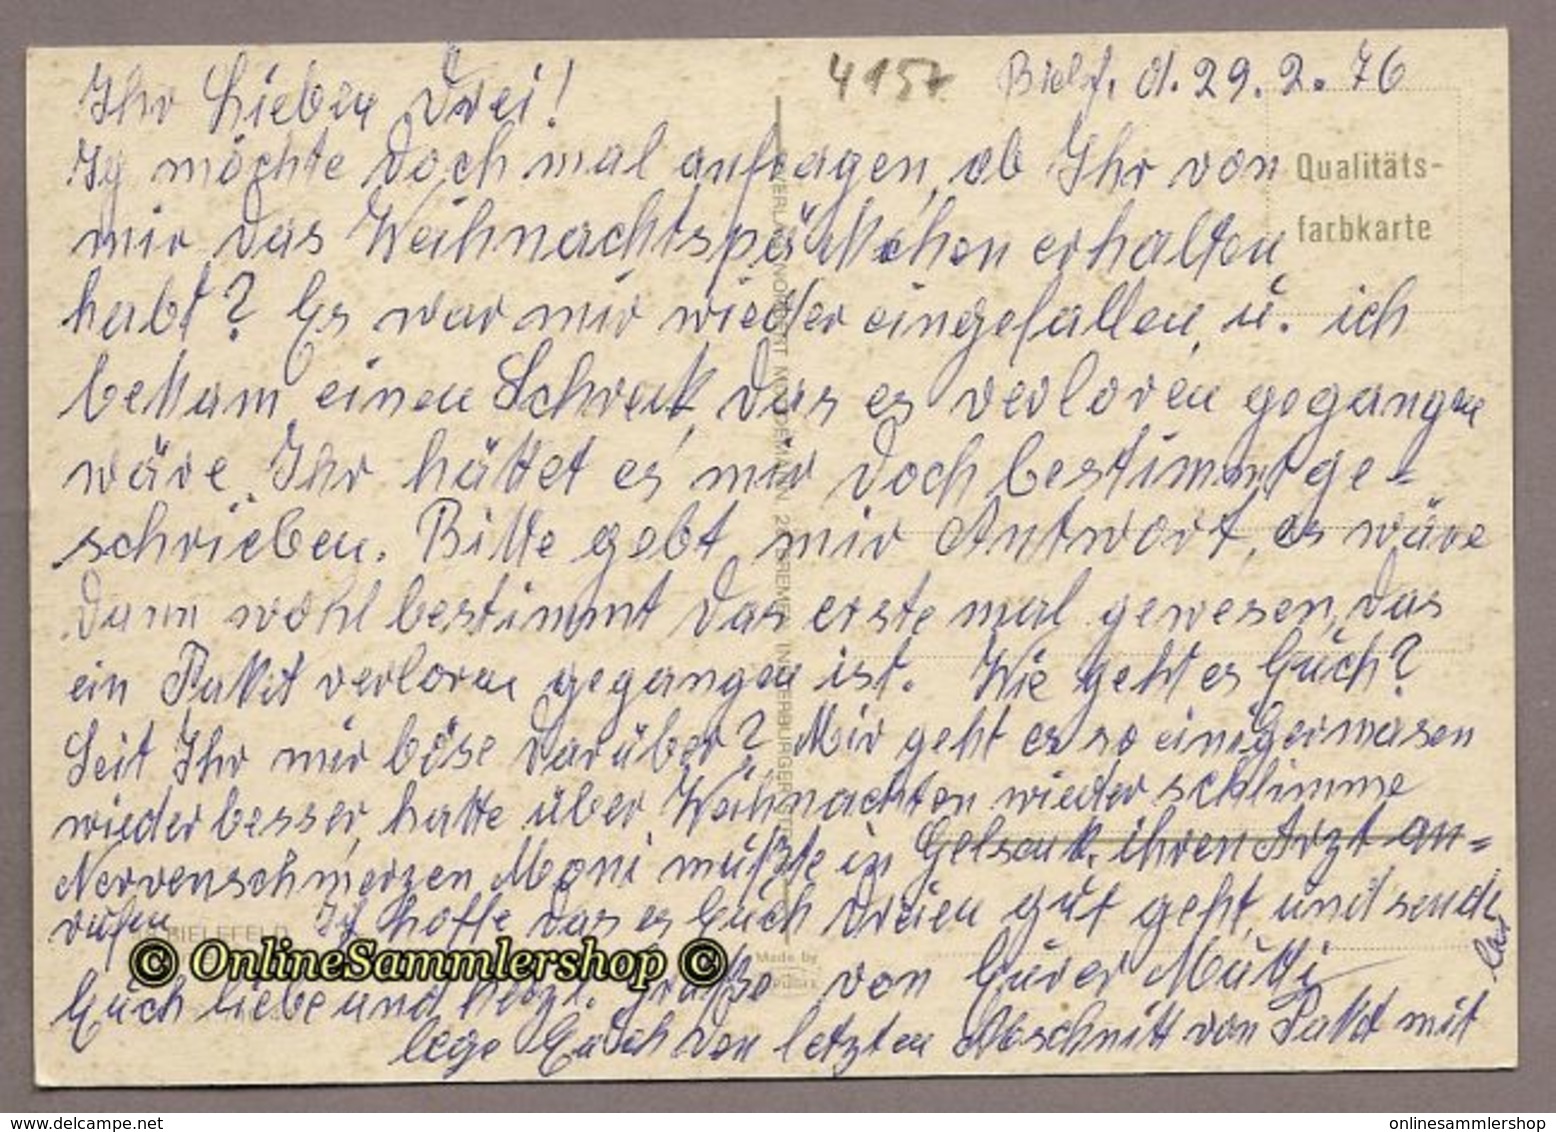 4157
Bielf. d. 29. 2. 76
Ihr Lieben Drei!
Ich möchte doch mal anfragen, ob Ihr von
mir das Weihnachtspäckchen erhalten
habt? Es war mir wieder eingefallen, u. ich
bekam einen Schreck, das es verloren gegangen
wäre. Ihr hättet es mir doch bestimmt ge=
schrieben. Bitte gebt mir Antwort, es wäre
dann wohl bestimmt das erste mal gewesen, das
ein Paket verloren gegangen ist. Wie geht es Euch?
Seit Ihr mir böse darüber? Mir geht es so einigermasen
wieder besser, hatte über Weihnachten wieder schlimme
Nervenschmerzen Moni mußte in Gelsenk. ihren Arzt an=
rufen Ich hoffe das es Euch dreien gut geht, und sende
Euch liebe und herzl. Grüße von Eurer Mutti
lege Euch den letzten Abschnitt von Paket mit
bei
Qualitäts-
farbkarte
BIELEFELD
Made by
© OnlineSammlershop ©
www.delcampe.net
onlinesammlershop